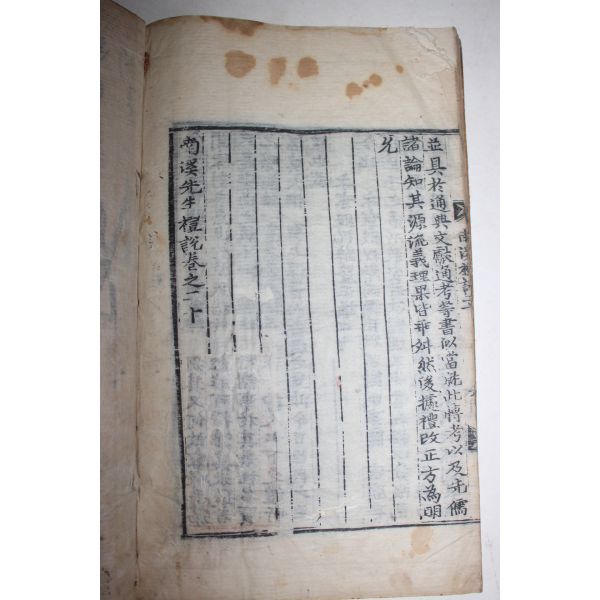 並具於通典文獻通考等書似當就此博考以及先儒
諸論知其源流義理果皆乖舛然後據禮改正方為明
允
南溪先生禮說卷之二十